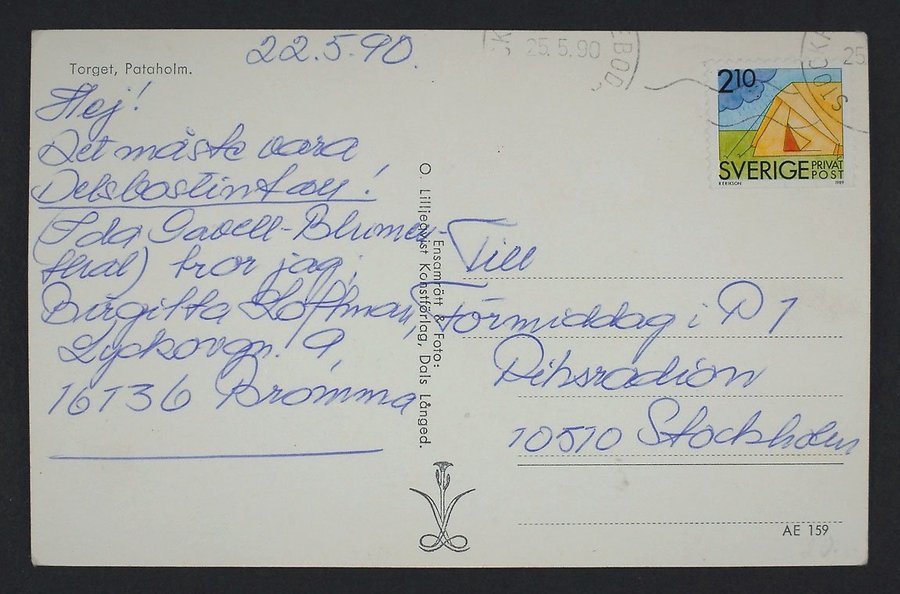 Torget, Pataholm.
22.5.90.
Hej!
Det måste vara
Delsbostintan!
(Ida Gawell-Blumen-
thal) tror jag.
Birgitta Hoffman,
Lyckovgn. 9,
16136 Bromma
O. Lilljeqvist Konstförlag, Dals Långed.
Ensamrätt & Foto:
25.5.90
25.
2 10
SVERIGE PRIVAT
POST
R ERIKSON 1989
Till
Förmiddag i P1
Riksradion
10510 Stockholm
AE 159